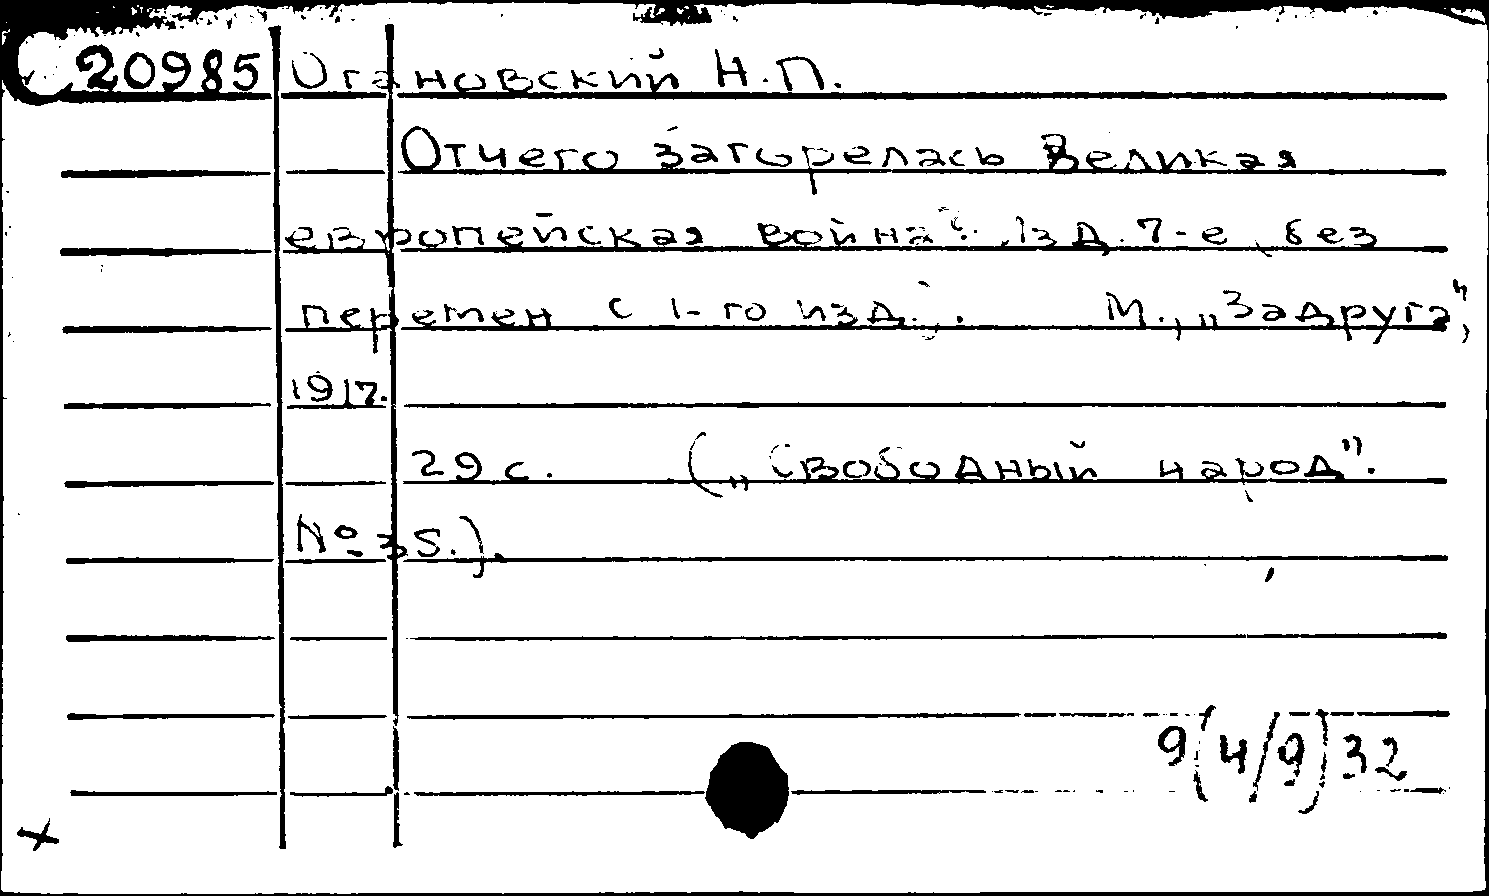 20985 Огановский Н.П.
Отчего загорелась Великая
европейская война? Изд. 7-е, без
перемен с 1-го изд.. М., „Задруга",
1917.
29 с. („Свободный народ".
№ 35.).
9(4/9)32